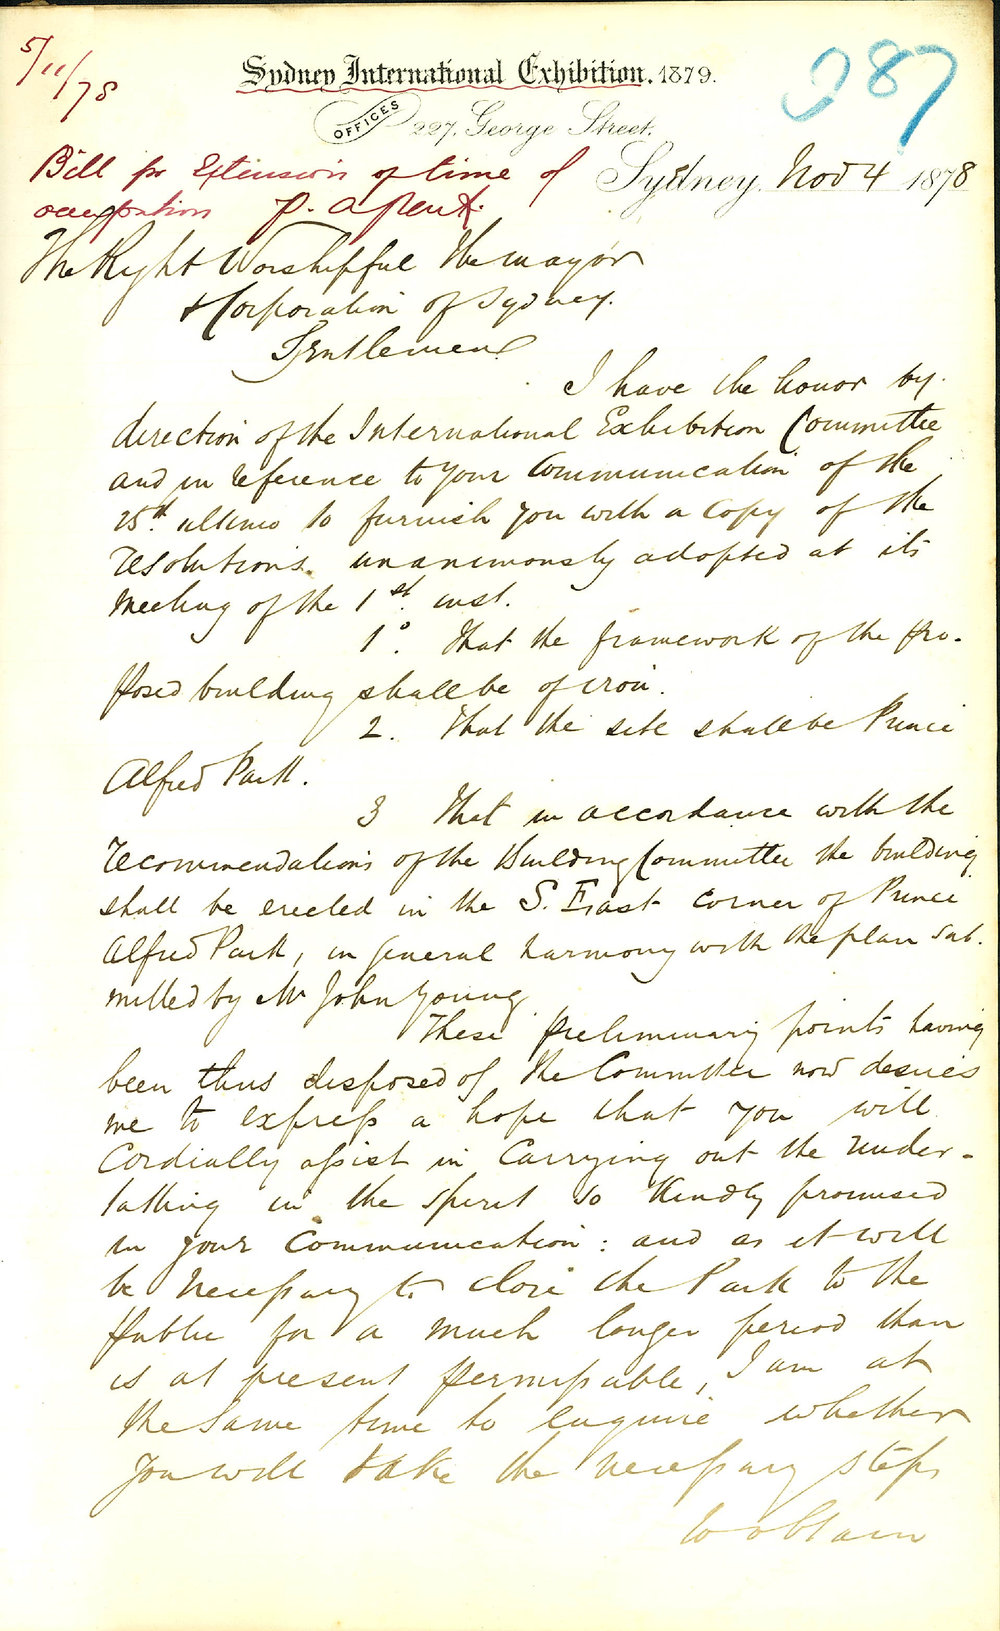 5/11/78
987
Sydney International Exhibition. 1879.
OFFICES 227, George Street.
Sydney, Nov 4 1878
Bill for Extension of time of
occupation P. A Park.
The Right Worshipful The Mayor
& Corporation of Sydney.
Gentlemen
I have the honor by
direction of the International Exhibition Committee
and in reference to your Communication of the
25th. ultimo to furnish you with a Copy of the
resolutions. unanimously adopted at its
meeting of the 1st. inst.
1o. That the framework of the pro-
posed building shall be of iron.
2. That the site shall be Prince
Alfred Park.
3 That in accordance with the
recommendations of the Building Committee the building
shall be erected in the S. East corner of Prince
Alfred Park, in general harmony with the plan sub-
mitted by Mr John Young
These preliminary points having
been thus disposed of the Committee now desires
me to express a hope that you will
Cordially assist in Carrying out the under-
taking in the spirit so kindly promised
in your Communication: and as it will
be necessary to close the Park to the
public for a much longer period than
is at present permissable, I am at
the same time to enquire whether
you will take the necessary steps
to obtain